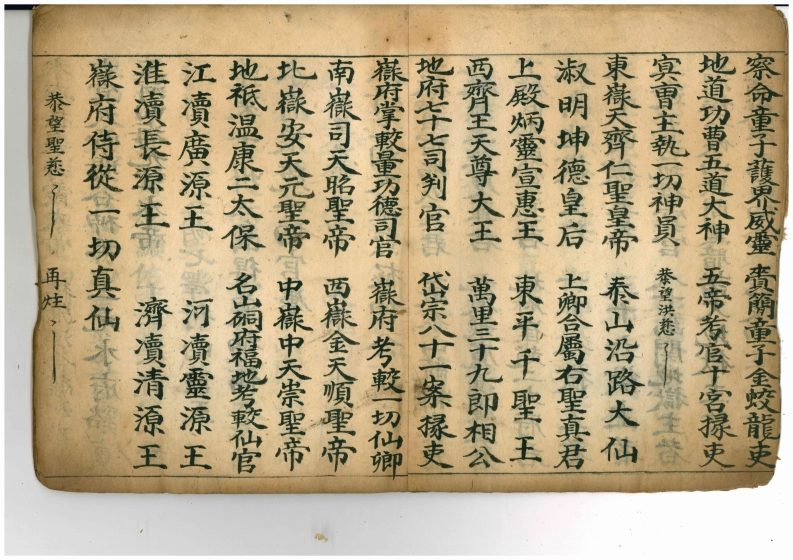 察命童子護界威靈 賫簡童子金蛟龍吏
地道功曹五道大神 五帝考官十宮掾吏
冥曹主執一切神員 恭望洪慈
東嶽天齊仁聖皇帝 泰山沿路大仙
淑明坤德皇后 上卿合屬右聖真君
上殿炳靈宣惠王 東平千聖王
西齊王天尊大王 萬里三十九郎相公
地府七十七司判官 岱宗八十一案掾吏
嶽府掌較量功德司官 嶽府考較一切仙卿
南嶽司天昭聖帝 西嶽金天順聖帝
北嶽安天元聖帝 中嶽中天崇聖帝
地祇溫康二太保 名山硐府福地考較仙官
江瀆廣源王 河瀆靈源王
淮瀆長源王 濟瀆清源王
嶽府侍從一切真仙
恭望聖慈 再炷